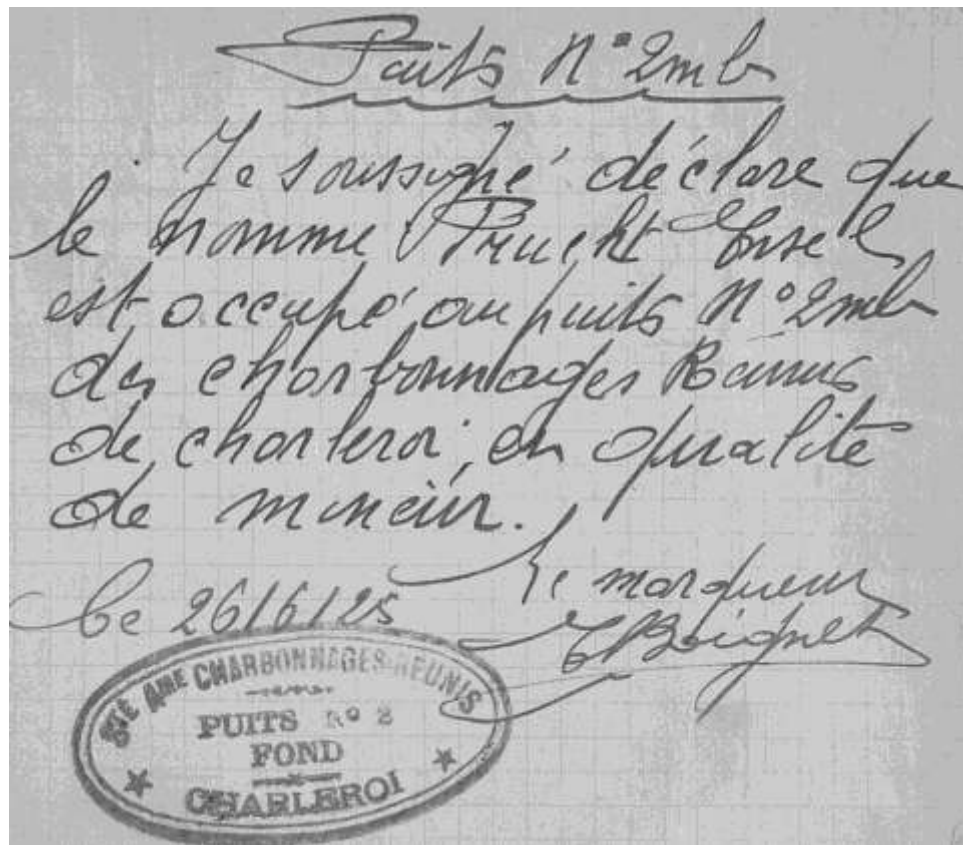 Puits N° 2mb
Je soussigné déclare que
le nommé Prucht
est occupé au puits N° 2mb
des charbonnages Réunis
de charleroi, en qualité
de mineur.
Le 26/6/25
le marqueur
STÉ AME CHARBONNAGES REUNIS
PUITS No 2
FOND
CHARLEROI